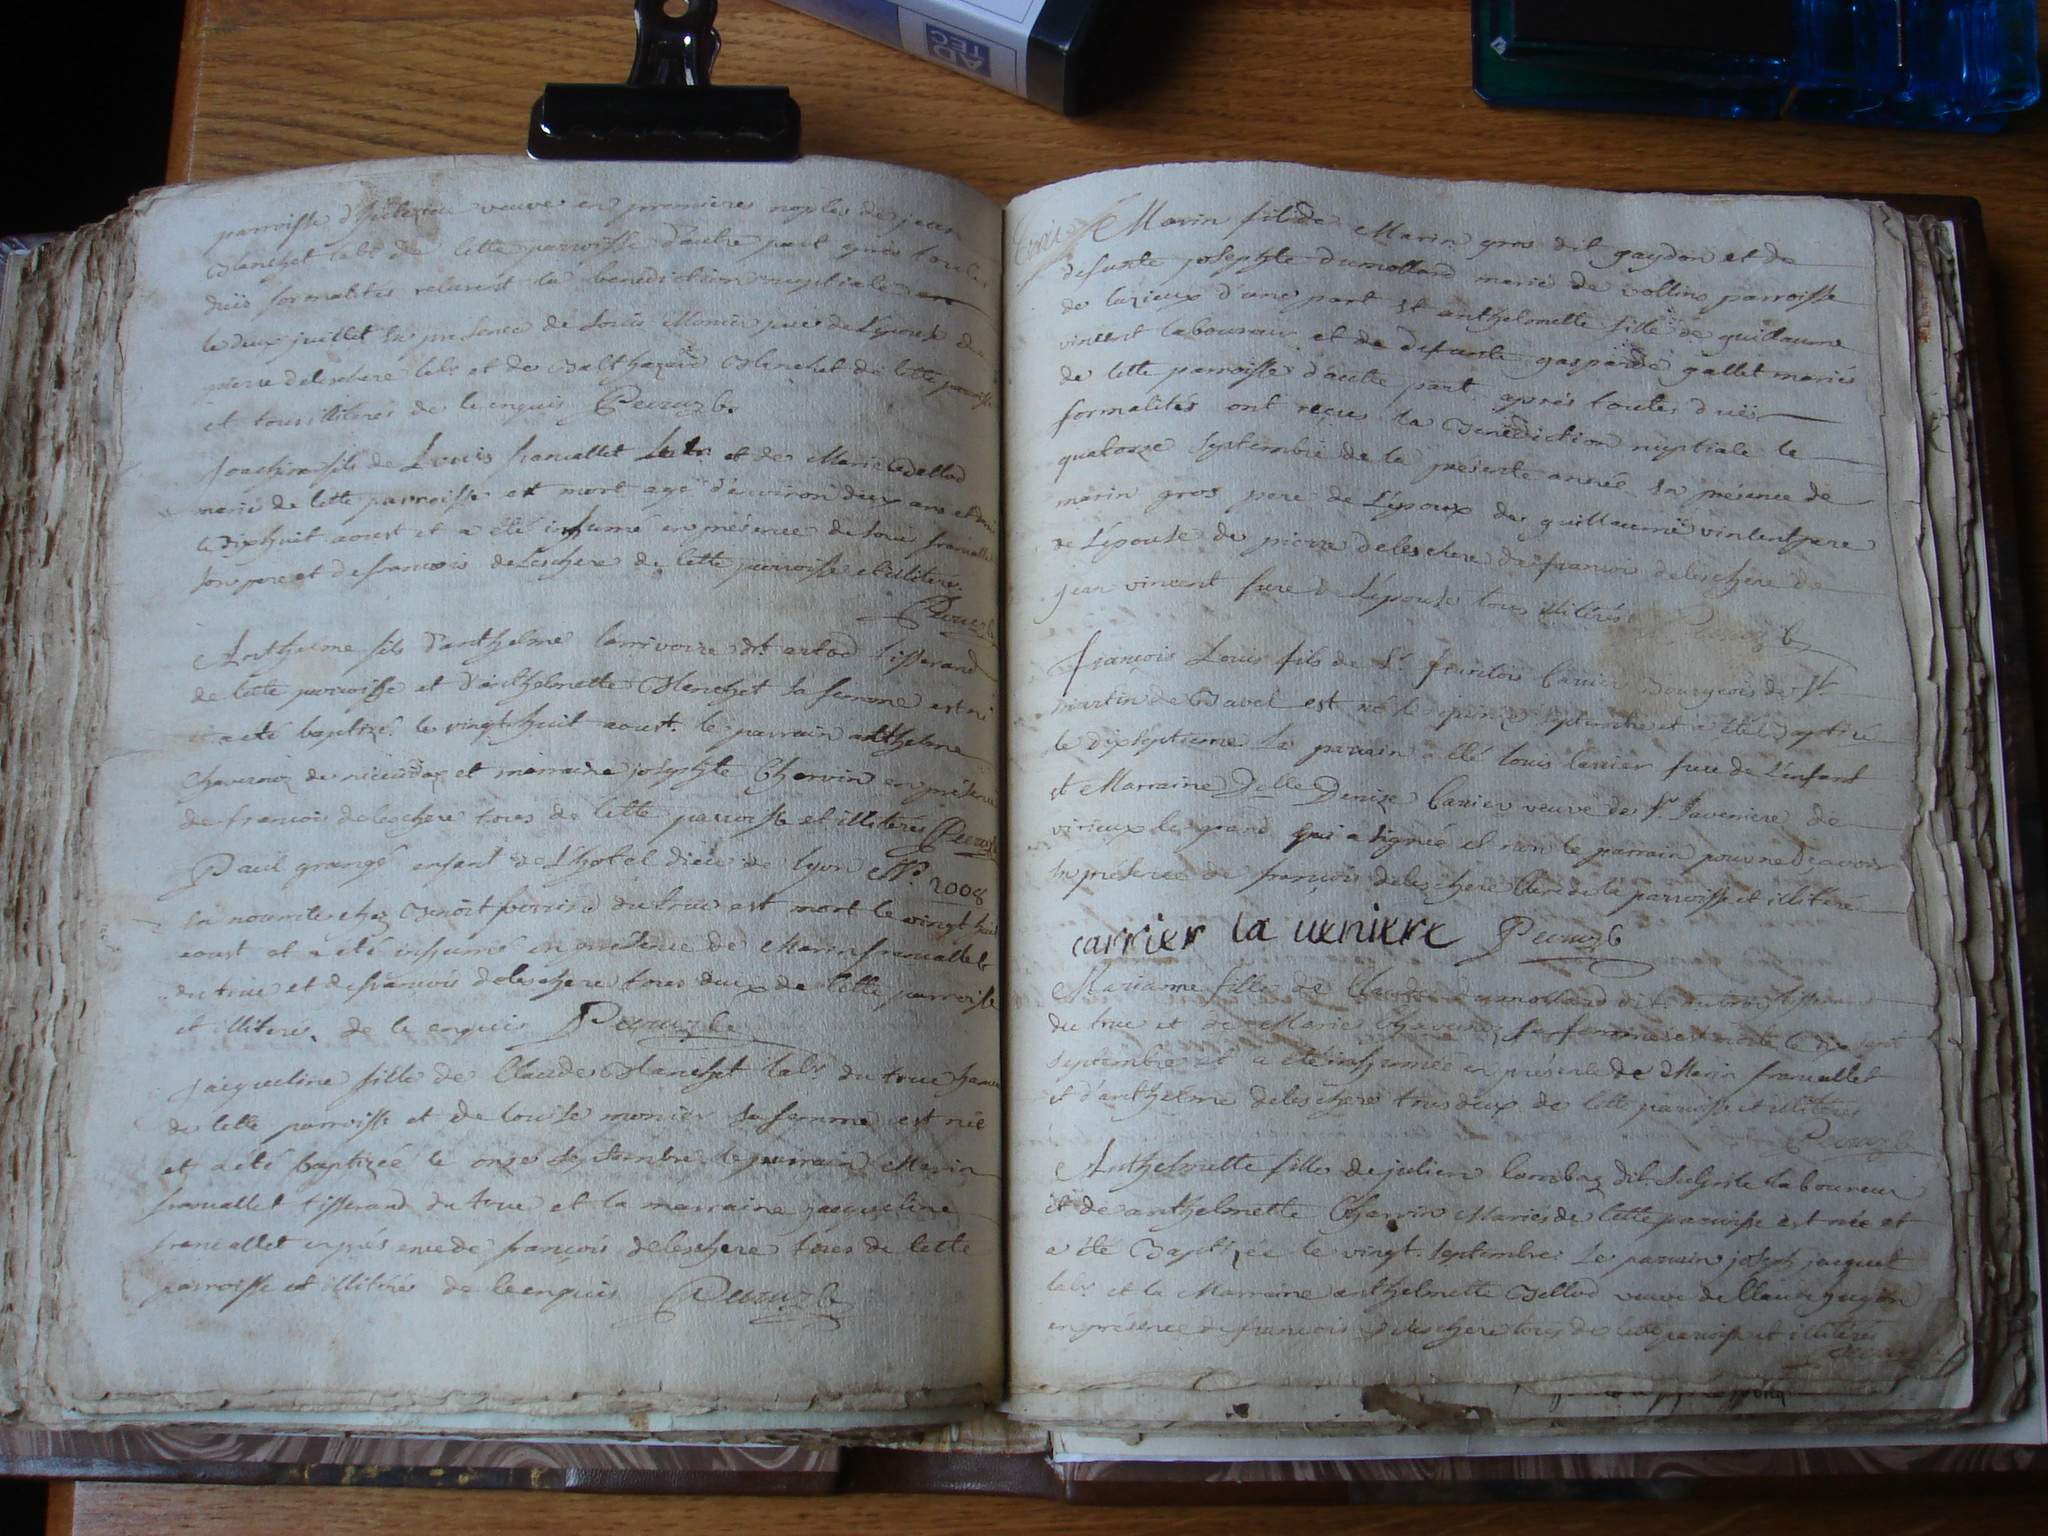 AD
TEC
parroisse veuve en premieres de jean
Blanchet lab.r de cette parroisse d'autre part après toutes
duës formalités la benediction nuptiale
le deux juillet En presence de Loüis Monier pere de l'époux de
pierre deleschere lab.r et de Balthazard Blanchet de cette parroisse
et tous illiterés de ce enquis
Joachim fils de Louis francallet et de Marie
mariés de cette parroisse est mort agé d'environ deux ans et demi
le dixhuit aoust et a été inhumé en présence de Louis francallet
son pere et de francois deleschere de cette parroisse et illiteré
Anthelme fils d'anthelme tisserand
de cette parroisse et d'anthelmette Blanchet sa femme est né
et a eté baptizé le vingt huit aoust. le parrain anthelme
de et marraine josephte Chervin en présence
de francois deleschere tous de cette parroisse et illiterés
Paul grangé enfant de L'hotel dieu de lyon N.o 2008
En nourrice chez Benoit du truc est mort le vingt huit
aoust et a été inhumé en présence de Marin francallet
du truc et de francois deleschere tous deux de cette parroisse
et illiterés de ce enquis
jacqueline fille de Claude Blanchet lab.r du truc
de cette parroisse et de louise monier sa femme est née
et a été baptizée le onze septembre le parrain Marin
francallet tisserand du truc et la marraine jacqueline
francallet en présence de françois deleschere tous de cette
parroisse et illiterés de ce enquis
Marin fils de Marin gros dit gaydon et de
defunte josephte dumollard mariés de vollins parroisse
de d'une part Et anthelmette fille de guillaume
vincent laboureur et de defunte gasparde gallet mariés
de cette parroisse d'autre part après toutes duës
formalités ont reçu la Benediction nuptiale le
quatorze septembre de la presente année En présence de
marin gros pere de L'époux de guillaume vincent pere
de L'épouse de pierre deleschere de francois deleschere de
jean vincent frere de L'épouse tous illiterés
François Louis fils de S.r Carrier Bourgeois de S.t
martin de Bavel est né le septembre et a été Baptizé
le dixseptieme Le parrain a été louis Carrier frere de L'enfant
et Marraine Delle Denize Carrier veuve de S.r Laveniere de
virieux le grand qui a signé et non le parrain pour ne sçavoir
En présence de françois deleschere Clerc de la parroisse et illiteré
carrier la veniere
Marianne fille de Claude dumollard dit
du truc et de Marie sa femme est morte le dix sept
septembre et a été inhumée en présence de Marin francallet
et d'anthelme deleschere tous deux de cette parroisse et illiterés
Anthelmette fille de julien dit laboureur
et de anthelmette Chervin Mariés de cette parroisse est née et
a été Baptizée le vingt septembre Le parrain joseph jacquet
lab.r et la Marraine anthelmette Bellod veuve de Claude
en présence de francois deleschere tous de cette parroisse et illiterés